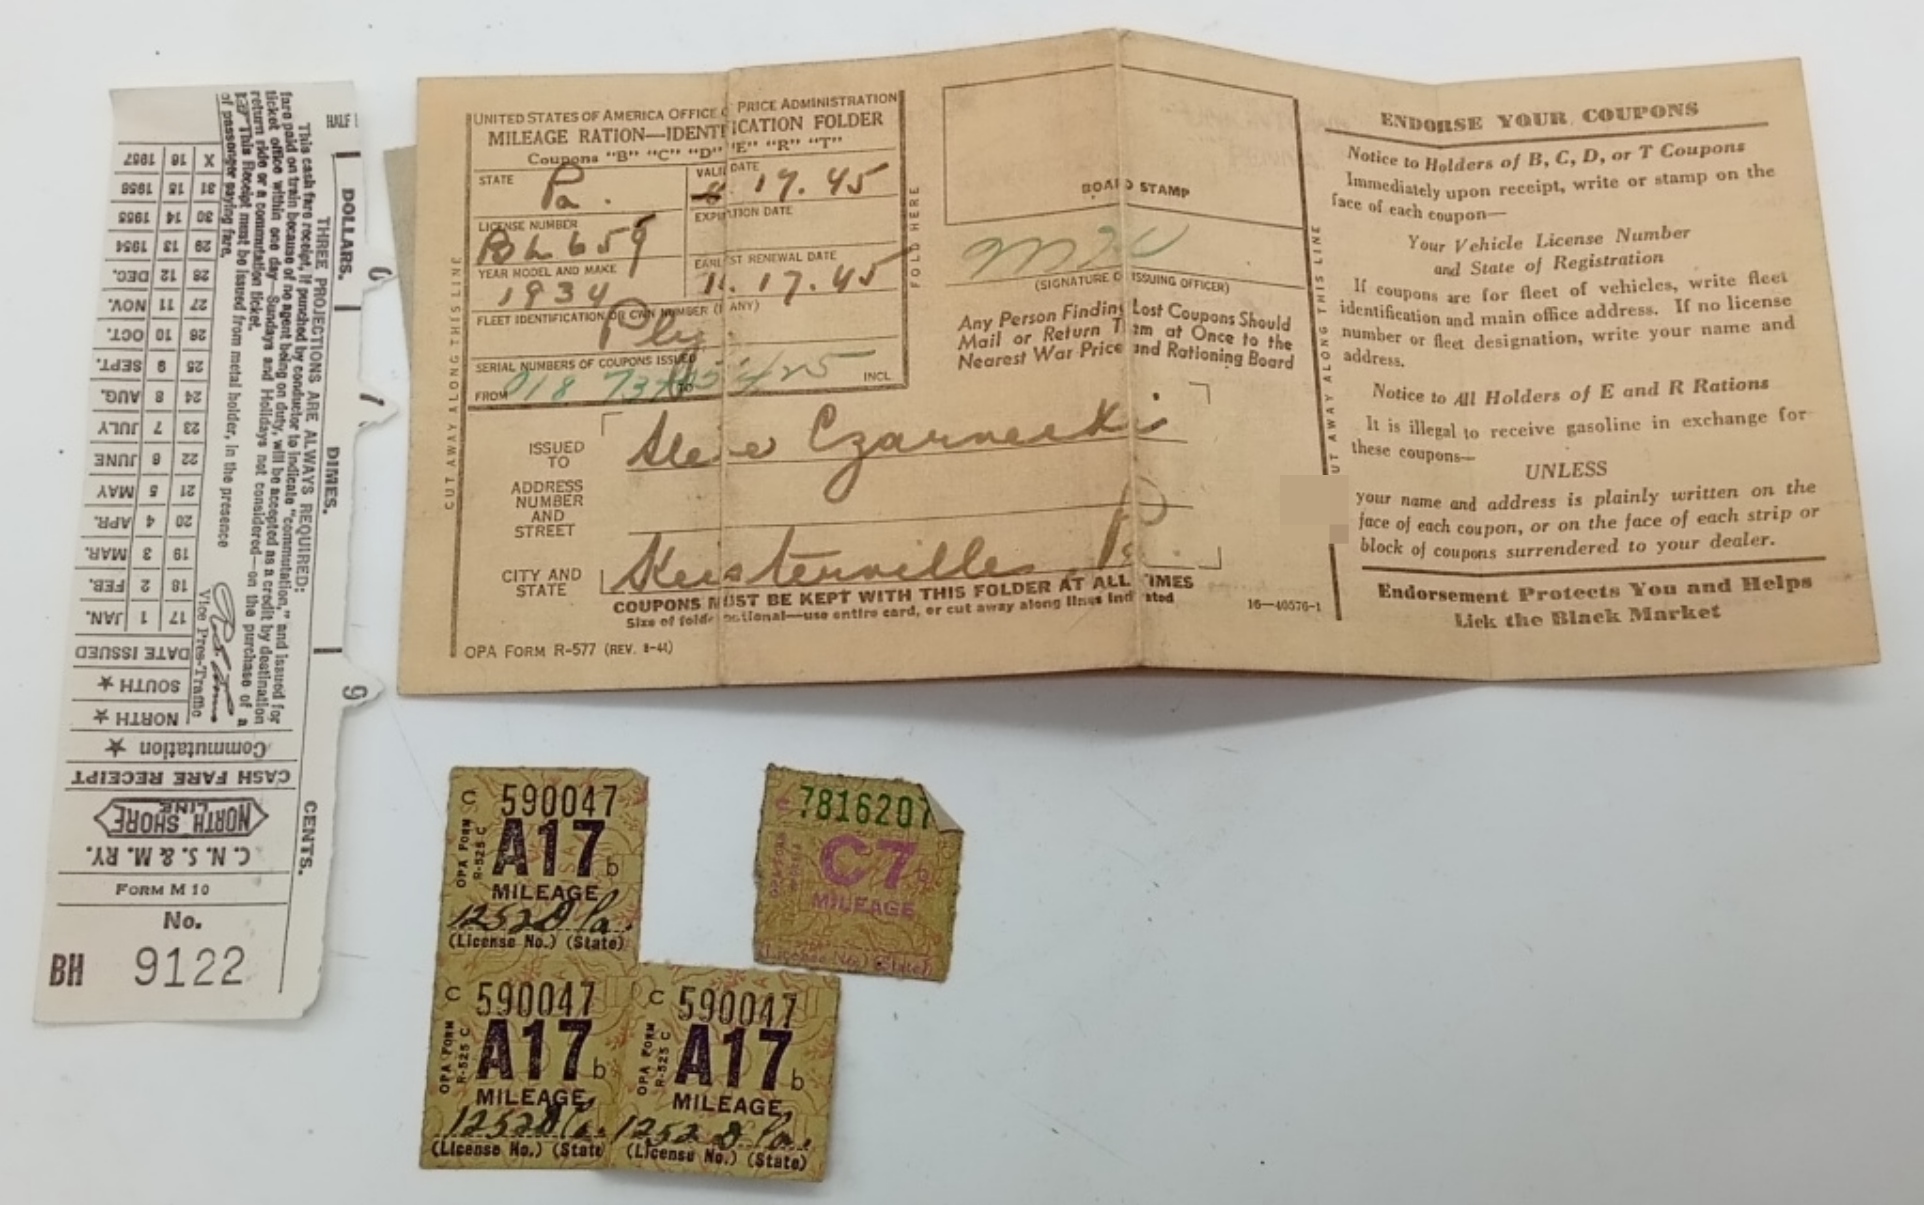 HALF
DOLLARS. DIMES. CENTS.
0 1 9
THREE PROJECTIONS ARE ALWAYS REQUIRED:
This cash fare receipt, if punched by conductor to indicate "commutation," and issued for
fare paid on train because of no agent being on duty, will be accepted as a credit by destination
ticket office within one day—Sundays and Holidays not considered—on the purchase of a
return ride or a commutation ticket.
This Receipt must be issued from metal holder, in the presence
of passenger paying fare.
Vice Pres-Traffic
BH 9122
No.
FORM M 10
C. N. S. & M. RY.
NORTH SHORE
LINE
CASH FARE RECEIPT
Commutation ★
NORTH ★
SOUTH ★
DATE ISSUED
JAN. 1 17
FEB. 2 18
MAR. 3 19
APR. 4 20
MAY 5 21
JUNE 6 22
JULY 7 23
AUG. 8 24
SEPT. 9 25
OCT. 10 26
NOV. 11 27
DEC. 12 28
1954 13 29
1955 14 30
1956 15 31
1957 16 X
UNITED STATES OF AMERICA OFFICE PRICE ADMINISTRATION
MILEAGE RATION—IDENTIFICATION FOLDER
Coupons "B" "C" "D" "E" "R" "T"
STATE
Pa.
VALID DATE
17. 45
LICENSE NUMBER
BL659
EXPIRATION DATE
YEAR MODEL AND MAKE
1934
EARLIEST RENEWAL DATE
11. 17. 45
FLEET IDENTIFICATION OR OWN NUMBER (IF ANY)
Ply.
SERIAL NUMBERS OF COUPONS ISSUED
FROM 018 TO 425 INCL.
CUT AWAY ALONG THIS LINE
FOLD HERE
BOARD STAMP
(SIGNATURE OF ISSUING OFFICER)
Any Person Finding Lost Coupons Should
Mail or Return Them at Once to the
Nearest War Price and Rationing Board
ISSUED
TO
Steve Czarnecki
ADDRESS
NUMBER
AND
STREET
CITY AND
STATE
Keisterville Pa.
COUPONS MUST BE KEPT WITH THIS FOLDER AT ALL TIMES
Size of folder optional—use entire card, or cut away along lines indicated
16—40576-1
OPA FORM R-577 (REV. 8-44)
CUT AWAY ALONG THIS LINE
ENDORSE YOUR COUPONS
Notice to Holders of B, C, D, or T Coupons
Immediately upon receipt, write or stamp on the
face of each coupon—
Your Vehicle License Number
and State of Registration
If coupons are for fleet of vehicles, write fleet
identification and main office address. If no license
number or fleet designation, write your name and
address.
Notice to All Holders of E and R Rations
It is illegal to receive gasoline in exchange for
these coupons—
UNLESS
your name and address is plainly written on the
face of each coupon, or on the face of each strip or
block of coupons surrendered to your dealer.
Endorsement Protects You and Helps
Lick the Black Market
C 590047
OPA FORM
R-525 C
A17 b
MILEAGE
1252D Pa.
(License No.) (State)
C 7816207
C7 b
MILEAGE
(License No.) (State)
C 590047
OPA FORM
R-525 C
A17 b
MILEAGE
1252D Pa.
(License No.) (State)
C 590047
OPA FORM
R-525 C
A17 b
MILEAGE
1252D Pa.
(License No.) (State)